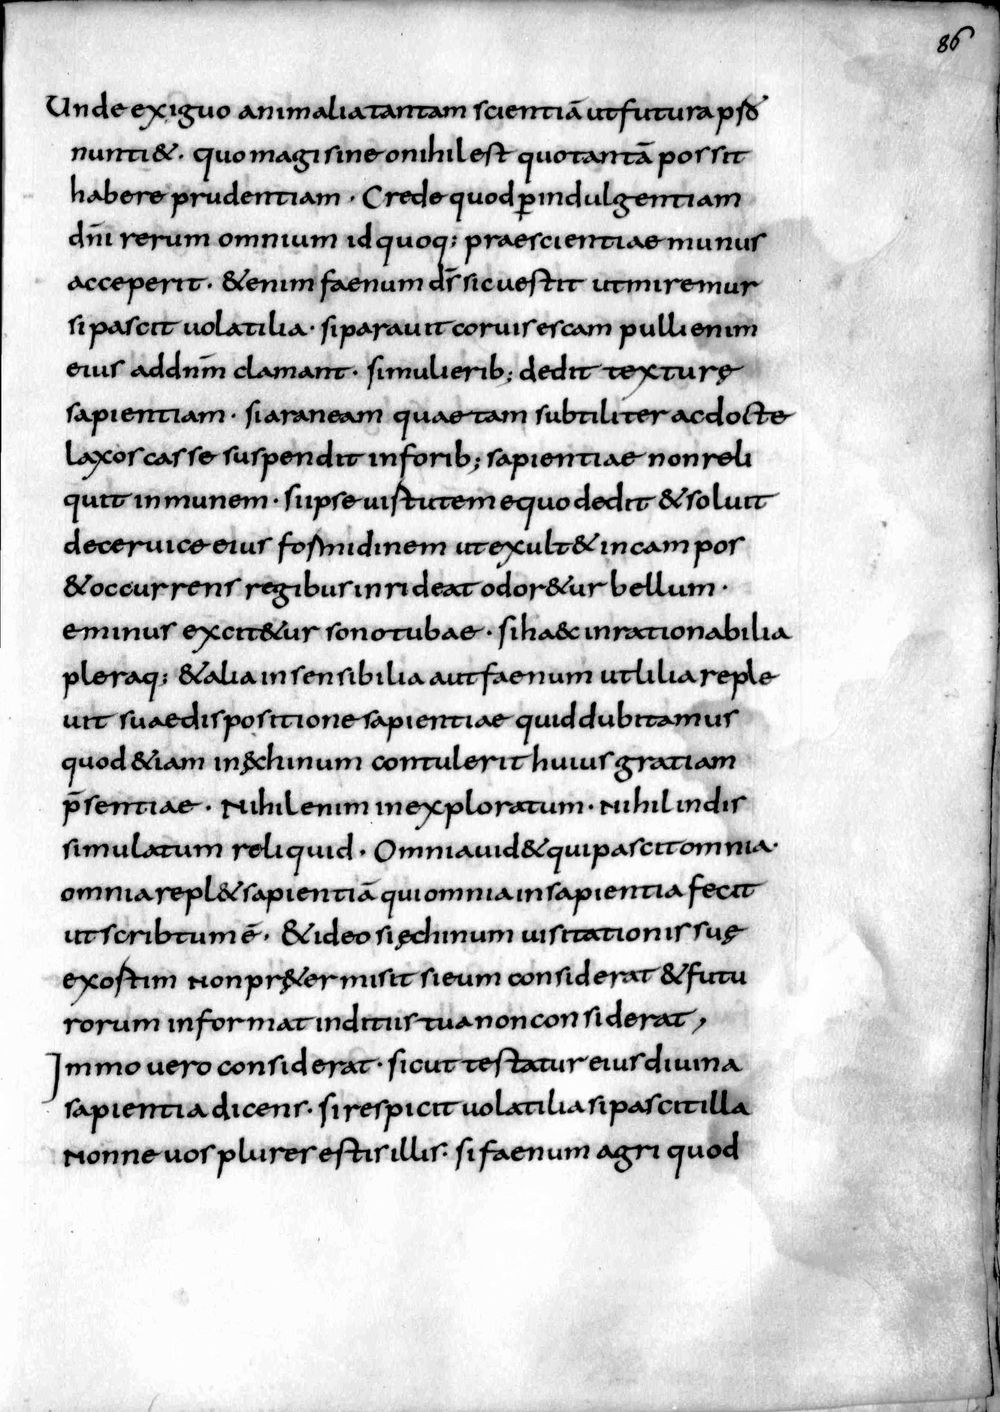 86
Unde exiguo animalia tantam scientiā ut futura p̄sđ
nunti&. quo magis ineo nihil est quo tantā possit
habere prudentiam. Crede quod ꝑ indulgentiam
dn̄i rerum omnium id quoq; praescientiae munus
acceperit. &enim faenum d̄s sic uestit ut miremur
si pascit uolatilia. si parauit coruis escam pulli enim
eius ad dn̄m clamant. si mulierib; dedit texturę
sapientiam. si araneam quae tam subtiliter ac docte
laxos casses suspendit in forib; sapientiae non reli
quit inmunem. si ipse uistutem equo dedit & soluit
de ceruice eius formidinem ut exult& in campos
& occurrens regibus inrideat odor&ur bellum.
eminus excit&ur sono tubae. si ha&c inrationabilia
pleraq; & alia insensibilia aut faenum ut lilia reple
uit suae dispositione sapientiae quid dubitamus
quod &iam in ęchinum contulerit huius gratiam
p̄sentiae. Nihil enim inexploratum. Nihil indis
simulatum reliquid. Omnia uid& qui pascit omnia.
omnia repl& sapientiā qui omnia in sapientia fecit
ut scribtum ē. & ideo si ęchinum uisitationis suę
exostim non prę&ermisit si eum considerat & futu
rorum informat inditiis tua non considerat,
Immo uero considerat. sicut testatur eius diuina
sapientia dicens. si respicit uolatilia si pascit illa
Nonne uos plures estis illis. si faenum agri quod